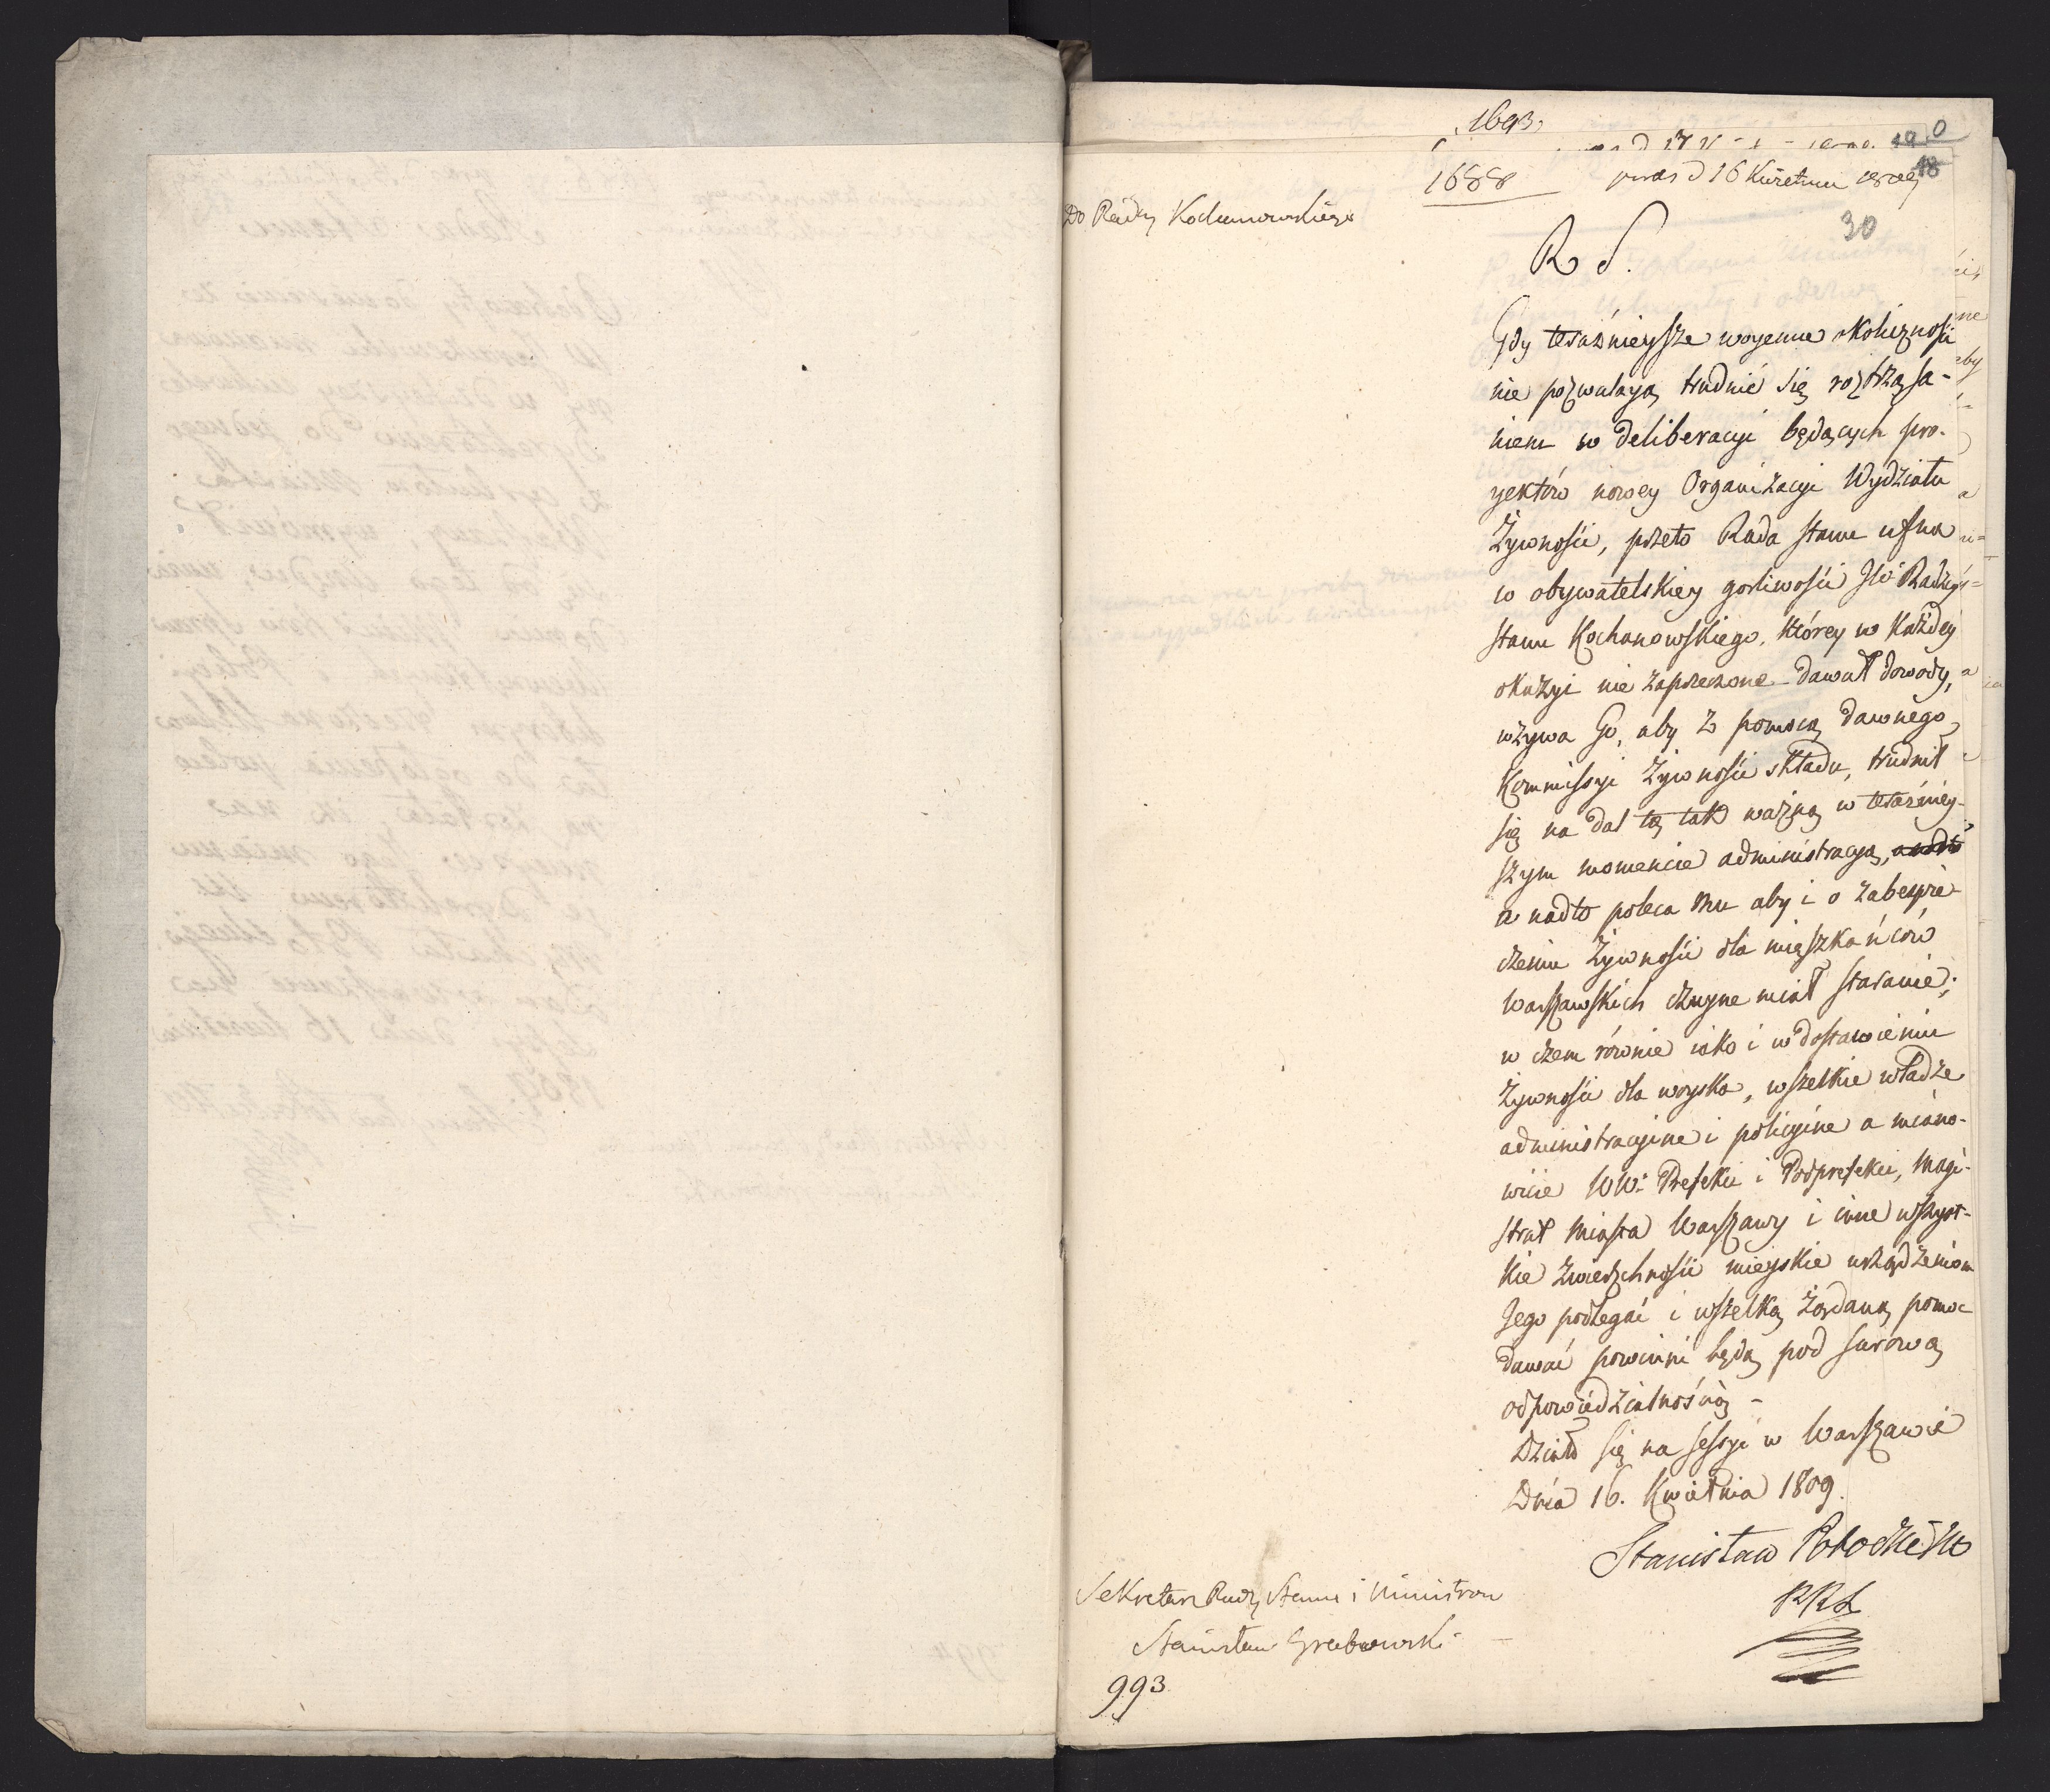 1693.
1688
praes d 16 Kwietnia 1809
18
30
Do Radcy Kochanowskiego
R S.
Gdy teraźnieysze woyenne okoliczności
nie pozwalaią trudnić się roztrząsa-
niem w deliberacyi będących pro-
yektów nowey Organizacyi Wydziału
Żywności, przeto Rada Stanu ufna
w obywatelskiey gorliwości JW Radcy
Stanu Kochanowskiego, którey w każdey
okazyi nie zaprzeczone dawał dowody,
wzywa Go, aby z pomocą dawnego
Kommissyi Żywności składu, trudnił
się na dal tą tak ważną w teraźniey-
szym momencie administracyą, a nadto
a nadto poleca Mu aby i o zabespie-
czeniu Żywności dla mięszkańców
Warszawskich czynne miał staranie;
w czem równie iako i w dostawieniu
Żywności dla woyska, wszelkie władze
administracyine i policyine a miano-
wicie WW. Prefekci i Podprefekci, Magi-
strat Miasta Warszawy i inne wszyst-
kie zwierzchności mieyskie urządzeniom
Jego podlegać i wszelką żądaną pomoc
dawać powinni będą pod surową
odpowiedzialnością -
Działo się na sessyi w Warszawie
Dnia 16. Kwietnia 1809.
Stanisław Potocki
Sekretarz Rady Stanu i Ministrow
Stanisław Grabowski
993